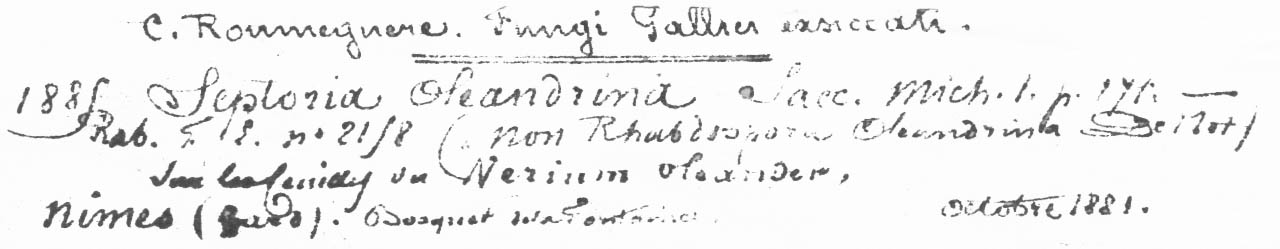 C. Roumeguere. Fungi Gallici exsiccati.
Septoria Oleandrina Sacc. Mich. 1. p.
Rab. F. E. nº 2158 (non Rhabdospora Oleandrina De Not)
Sur les feuilles du Nerium oleander,
Nimes (Gard). Bosquet de la Fontaine. Octobre 1881.